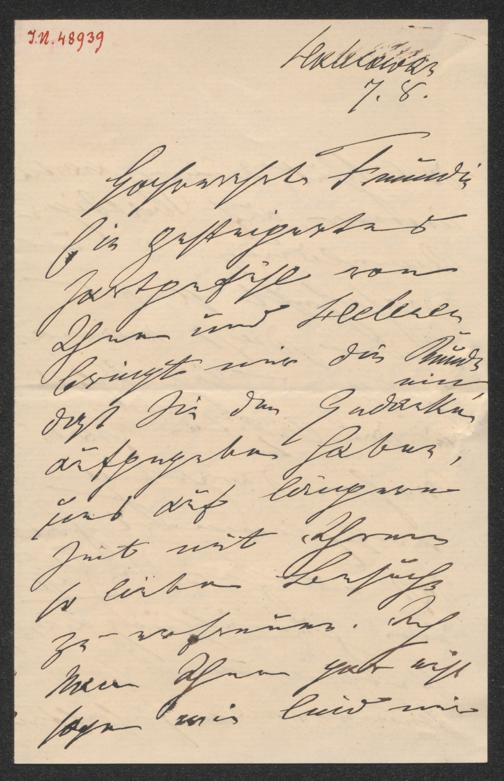 I.N. 48939
7. 8.
Hochverehrte Freundin
Ein gesteigertes
Zartgefühl von
Ihnen und Helenen
bringt mir die Kunde
ein
daß Sie den Gedanken
aufgegeben haben,
uns auf längere
Zeit mit Ihrem
so lieben Besuche
zu erfreuen. Ich
kann Ihnen gar nicht
sagen wie leid mir